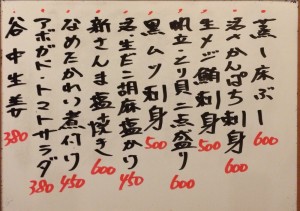 蒸し床ぶし 600
活かんぱち刺身 600
生メジ鮪刺身 500
帆立とり貝二点盛り 600
黒ムツ刺身 500
活生ダコ胡麻塩かり 450
新さんま塩焼き 600
なめたかれい煮付け 450
アボカド・トマトサラダ 380
谷中生姜 380